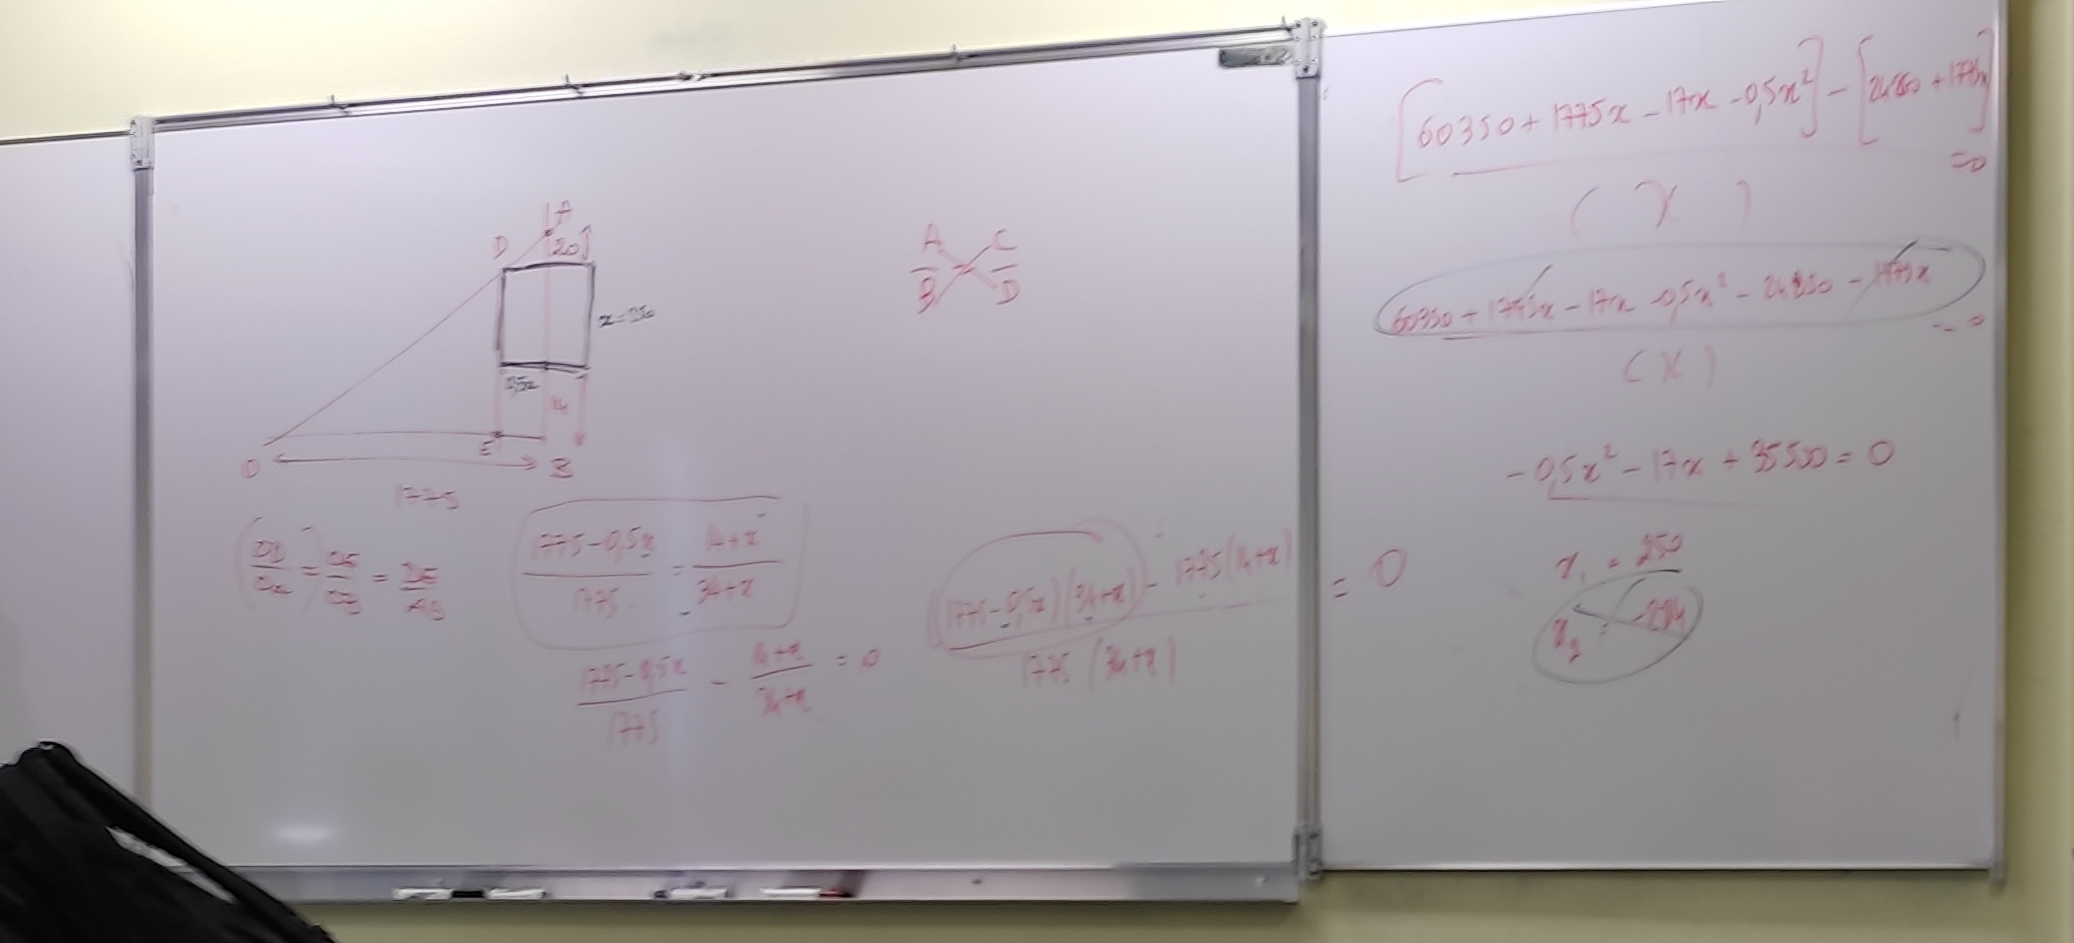 A
D 20
x=250
0,5x
14
E
O B
1775
OD/OA = OE/OB = DE/AB
A/B = C/D
(1775-0,5x)/1775 = (14+x)/(34+x)
(1775-0,5x)/1775 - (14+x)/(34+x) = 0
((1775-0,5x)(34+x) - 1775(14+x))/(1775(34+x)) = 0
[60350+1775x-17x-0,5x²] - [24850+1775x] =0
( X )
60350+1775x-17x-0,5x²-24850-1775x = 0
(X)
-0,5x²-17x+35500=0
x₁ = 250
x₂ = -284